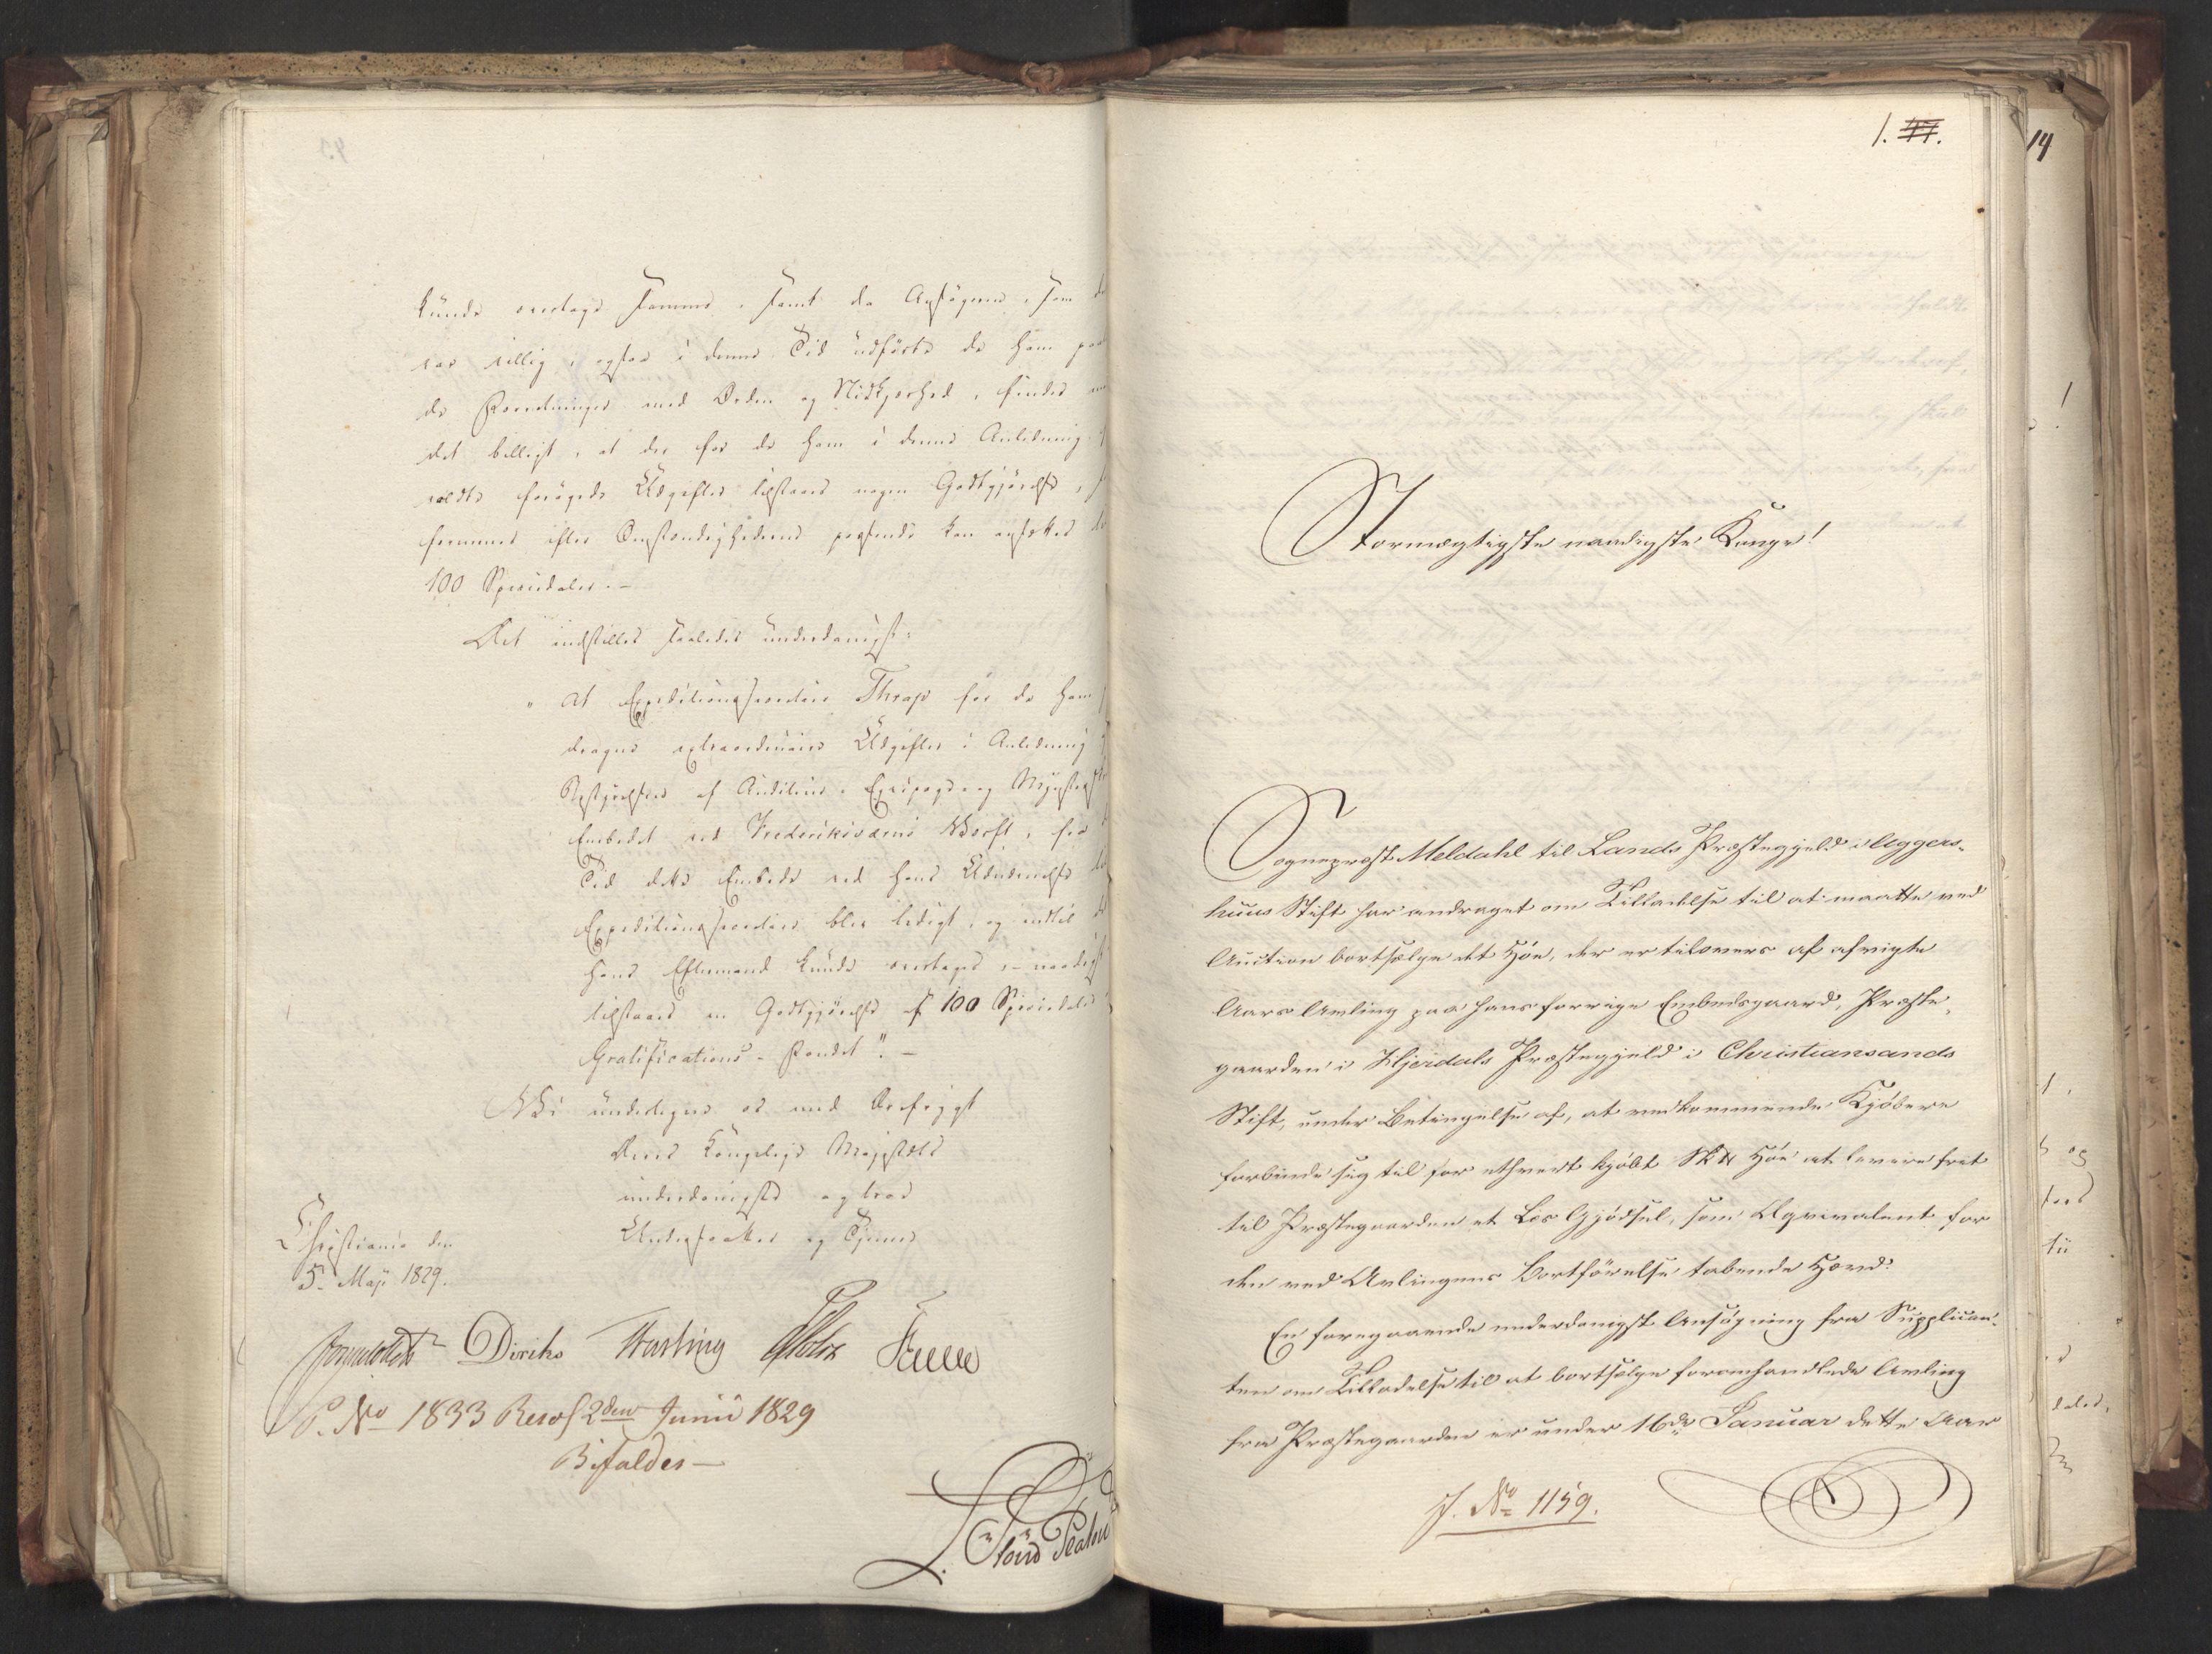 kunde overtage samme, samt da Ansøgeren, som
var villig, ogsaa i denne Tid udførte de ham
de Forretninger med Orden og Nidkjerhed, findes
det billigt, at der for de ham i denne Anledning
voldte forøgede Udgifter tilstaaes nogen Godtgjørelse,
formenes efter Omstændighederne passende kan ansættes
100 Speciedaler.-
Det indstilles saaledes underdanigst:
" at Expeditionssecretair Thrap for de ham
dragne extraordinaire Udgifter i Anledning
Bestyrelsen af Auditeur- Equipage- og Mynster
Embedet ved Frederiksværns Værft, fra
Tid dette Embede ved hans Udnævnelse
Expeditionssecretair blev ledigt, og indtil
hans Eftermand kunde overtage, - naadigst
tilstaaes en Godtgjørelse af 100 Speciedaler
Gratifications-Fondet". -
Vi undertegne os med Dybeste
Deres Kongelige Majestæts
underdanigste og troe
Undersaatter og Tjenere
Christiania den
5. Maji 1829.
Diriks Fasting Holst
P. No 1833 Resol 2den Junii 1829
Bifaldes -
1. 47.
14
Stormægtigste naadigste Konge!
Sognepræst Meldahl til Lands Præstegjeld i Aggers-
huus Stift har andraget om Tilladelse til at maatte ved
Auction bortsælge det Høe, der er tilovers af afvigte
Aars Avling paa hans forrige Embedsgaard, Præste-
gaarden i Hjerdals Præstegjeld i Christiansands
Stift, under Betingelse af, at vedkommende Kjøbere
forbinde sig til for ethvert kjøbt Sk℔ Høe at levere frit
til Præstegaarden et Læs Gjødsel, som Æqvivalent for
den ved Avlingens Bortførelse tabende Hævd.
En foregaaende underdanigst Ansøgning fra Supplican-
ten om Tilladelse til at bortsælge foromhandlede Avling
fra Præstegaarden er under 16de Januar dette Aar
J. No 1159.